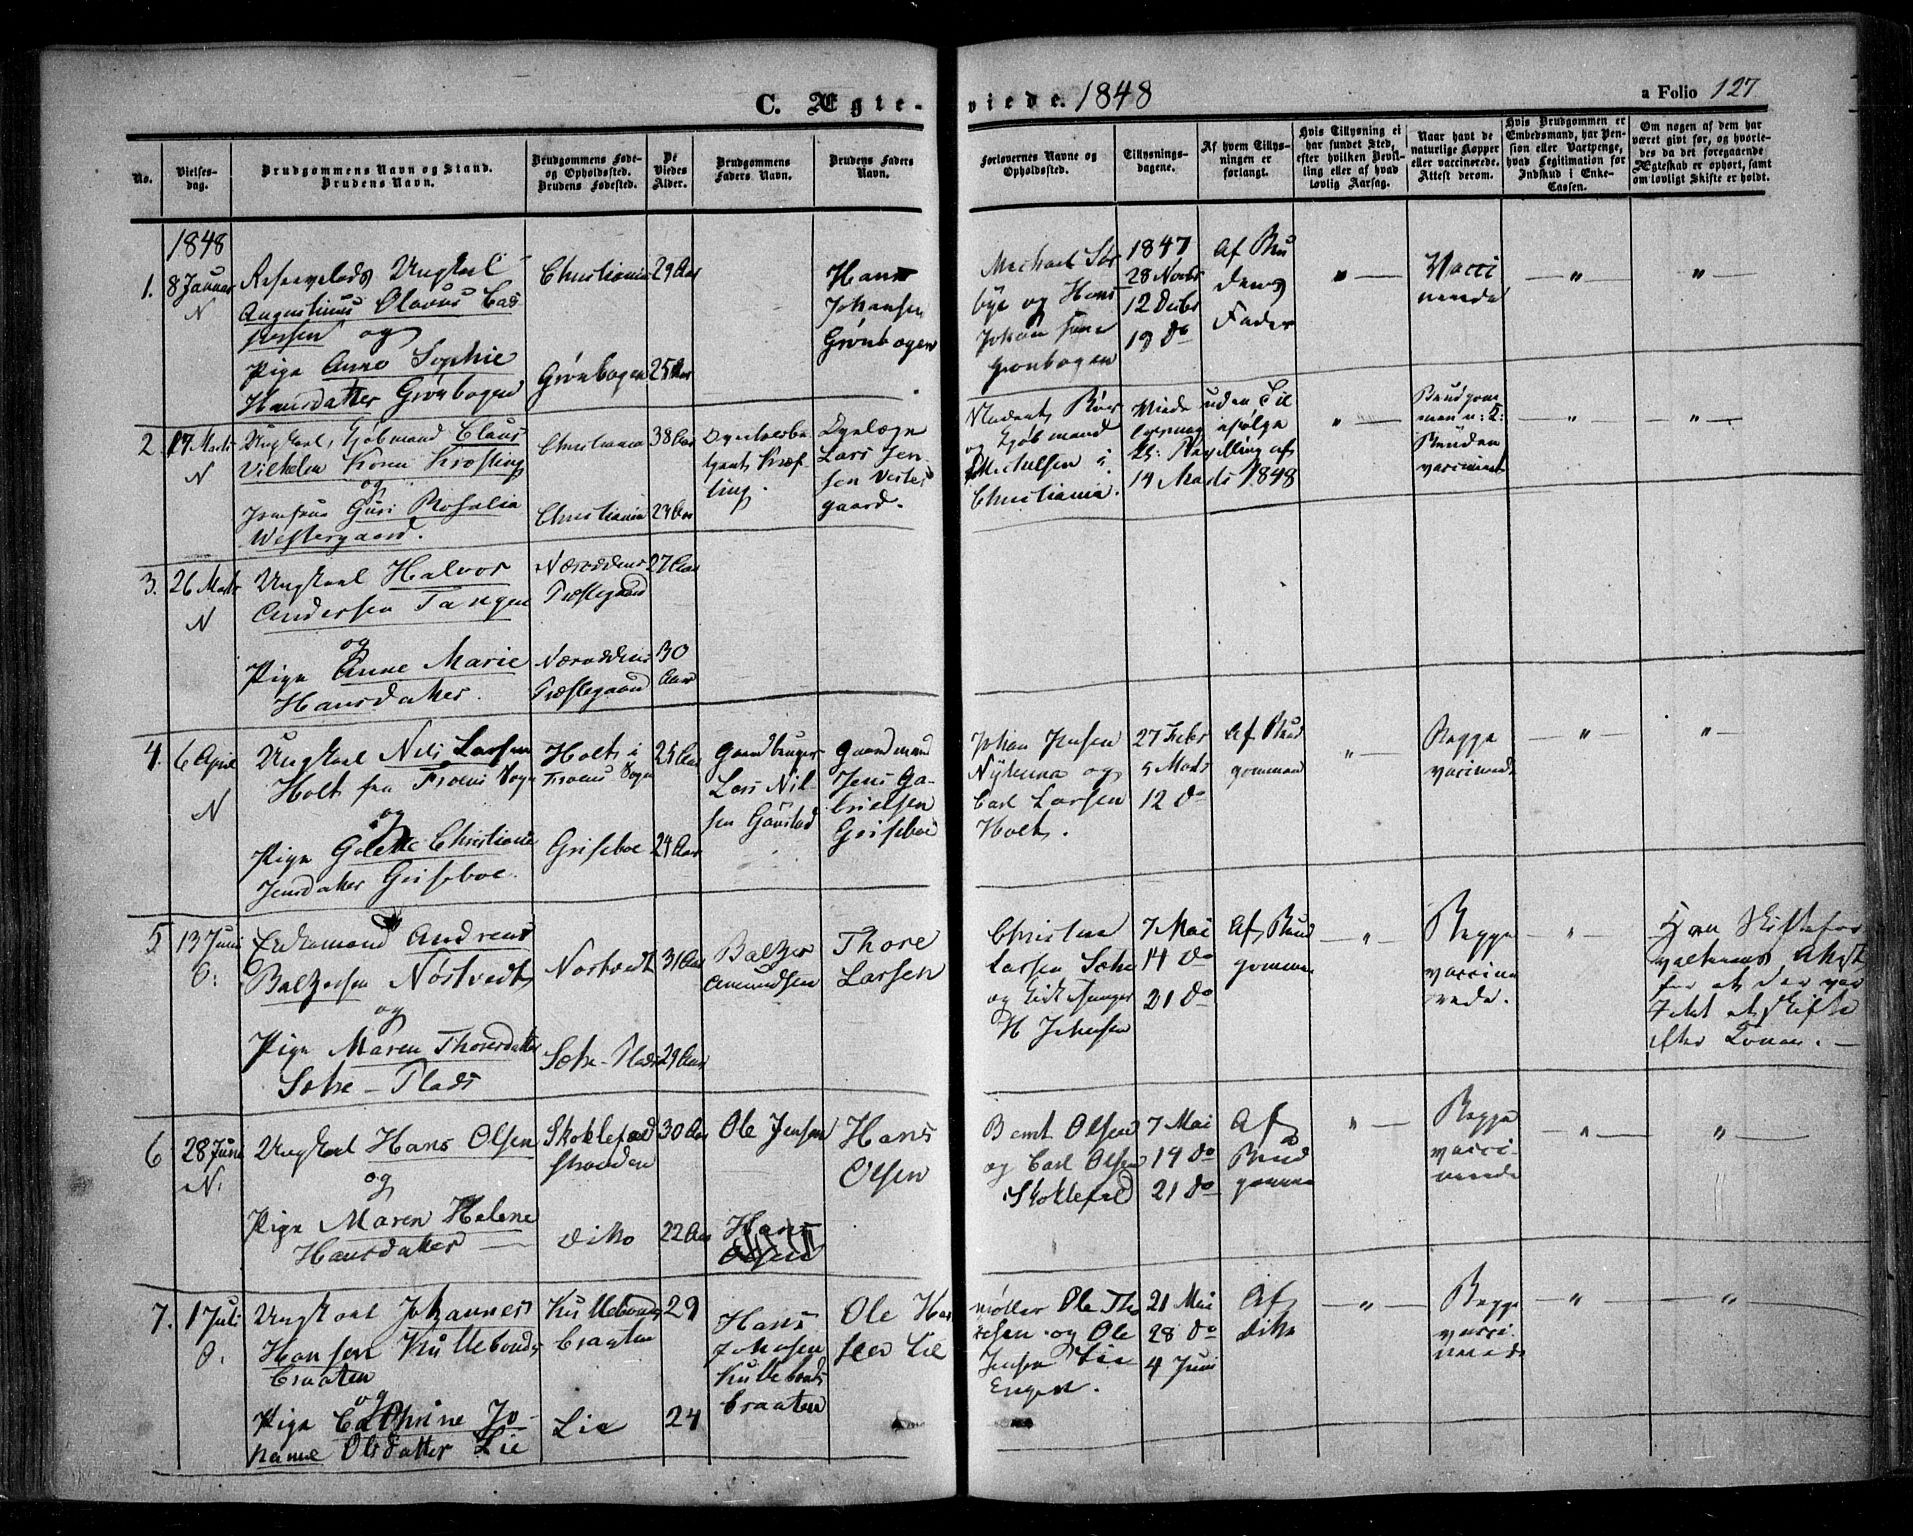 C. Ægte-viede. 1848
a Folio 127
No.
Vielses-
dag.
Brudgommens Navn og Stand.
Brudens Navn.
Brudgommens Føde-
og Opholdssted.
Brudens Fødested.
De
Viedes
Alder.
Brudgommens
Faders Navn.
Brudens Faders
Navn.
Forlovernes Navne og
Opholdssted.
Tillysnings-
dagene.
Af hvem Tillys-
ningen er
forlangt.
Hvis Tillysning ei
har fundet Sted,
efter hvilken Bevil-
ling eller af hvad
lovlig Aarsag.
Naar havt de
naturlige Kopper
eller vaccinerede.
Attest derom.
Hvis Brudgommen er
Embedsmand, har Pen-
sion eller Vartpenge,
hvad Legitimation for
Indskud i Enke-
Cassen.
Om nogen af dem har
været givt før, og hvorle-
des da det foregaaende
Ægteskab er ophørt, samt
om lovligt Skifte er holdt.
1848
1.
8 Januar
N
Ungkarl
Augustinus Olavus Cas
persen og
Pige Anne Sophie
Hansdatter Grønbogen
Christiania
Grønbogen
29 Aar
25 Aar
Hans
Johansen
Grønbogen
Michael
bye og Hans
Johan
Grønbogen
1847
28 Novbr
12 Decbr
19 do
Af Bru
dens
Fader
"
Vacci
nerede
"
"
2.
17 Marts
N
Ungkarl, Kjøbmand Claus
Vilhelm Krefting
og
Jomfrue Guri Rosalia
Westergaard.
Christiania
Christiania
38 Aar
24 Aar
Kref
ting.
Dyrlæge
Lars Jen-
sen Vester
gaard.
og Kjøbmand
Michelsen i
Christiania.
Viede uden Til
lysning ifølge
Bevilling af
14 Marts 1848
"
Brudgom
men n: K:
Bruden
vaccineret
"
"
3.
26 Marts
N
Ungkarl Halvor
Andersen Tangen
og
Pige Anne Marie
Hansdatter.
Næsoddens
Præstegaard
Næsoddens
Præstegaard
27 Aar
30
Aar
4.
6 April
N
Ungkarl Nils Larsen
Holt fra Froens Sogn
og
Pige Golette Christiane
Jensdatter Griseboe.
Holt i
Froens Sogn
Griseboe
25 Aar
24 Aar
Gaardbruger
Lars Nil-
sen Gaustad
Gaardmand
Jens Ga-
brielsen
Griseboe
Johan Jensen
og
Carl Larsen
Holt.
27 Febr
5 Marts
12 do
Af Brud
gommen
"
Begge
vaccinerede
"
"
5
13 Juni
O:
Enkemand Andreas
Baltzersen Nostvedt
og
Pige Maren Thoresdatter
Sætre-Plads
Nostvedt
Sætre-Plads
31 Aar
29 Aar
Baltzer
Amundsen
Thore
Larsen
Christian
Larsen Sætre
og
H Johnsen
7 Mai
14 do
21 do
Af Brud
gommen
"
Begge
vaccine
rede.
"
Skiftefor
valterens Attest
for at der var
Intet at skifte
efter Konen.
6
28 Juni
N.
Ungkarl Hans Olsen
og
Pige Maren Helene
Hansdatter
Skoklefald
stranden
dito
30 Aar
22 Aar
Ole Jensen
Hans
Olsen
Hans
Olsen
Bernt Olsen
og Carl Olsen
Skoklefald
7 Mai
14 do
21 do
Af
Brud
gommen
"
Begge
vacci-
nerede
"
"
7.
1 Juli
O.
Ungkarl Johannes
Hansen Kullebonds
braaten
og
Pige Cathrine Jo-
hanne Olsdatter Lie
Kullebonds
braaten
Lie
29
24
Hans
Johnsen
Kullebonds
braaten
Ole Han
sen Lie
Møller Ole Tho
resen og Ole
Jensen Lie
Engen.
21 Mai
28 do
4 Juni
Af
dito
"
Begge
vacci
nerede
"
"